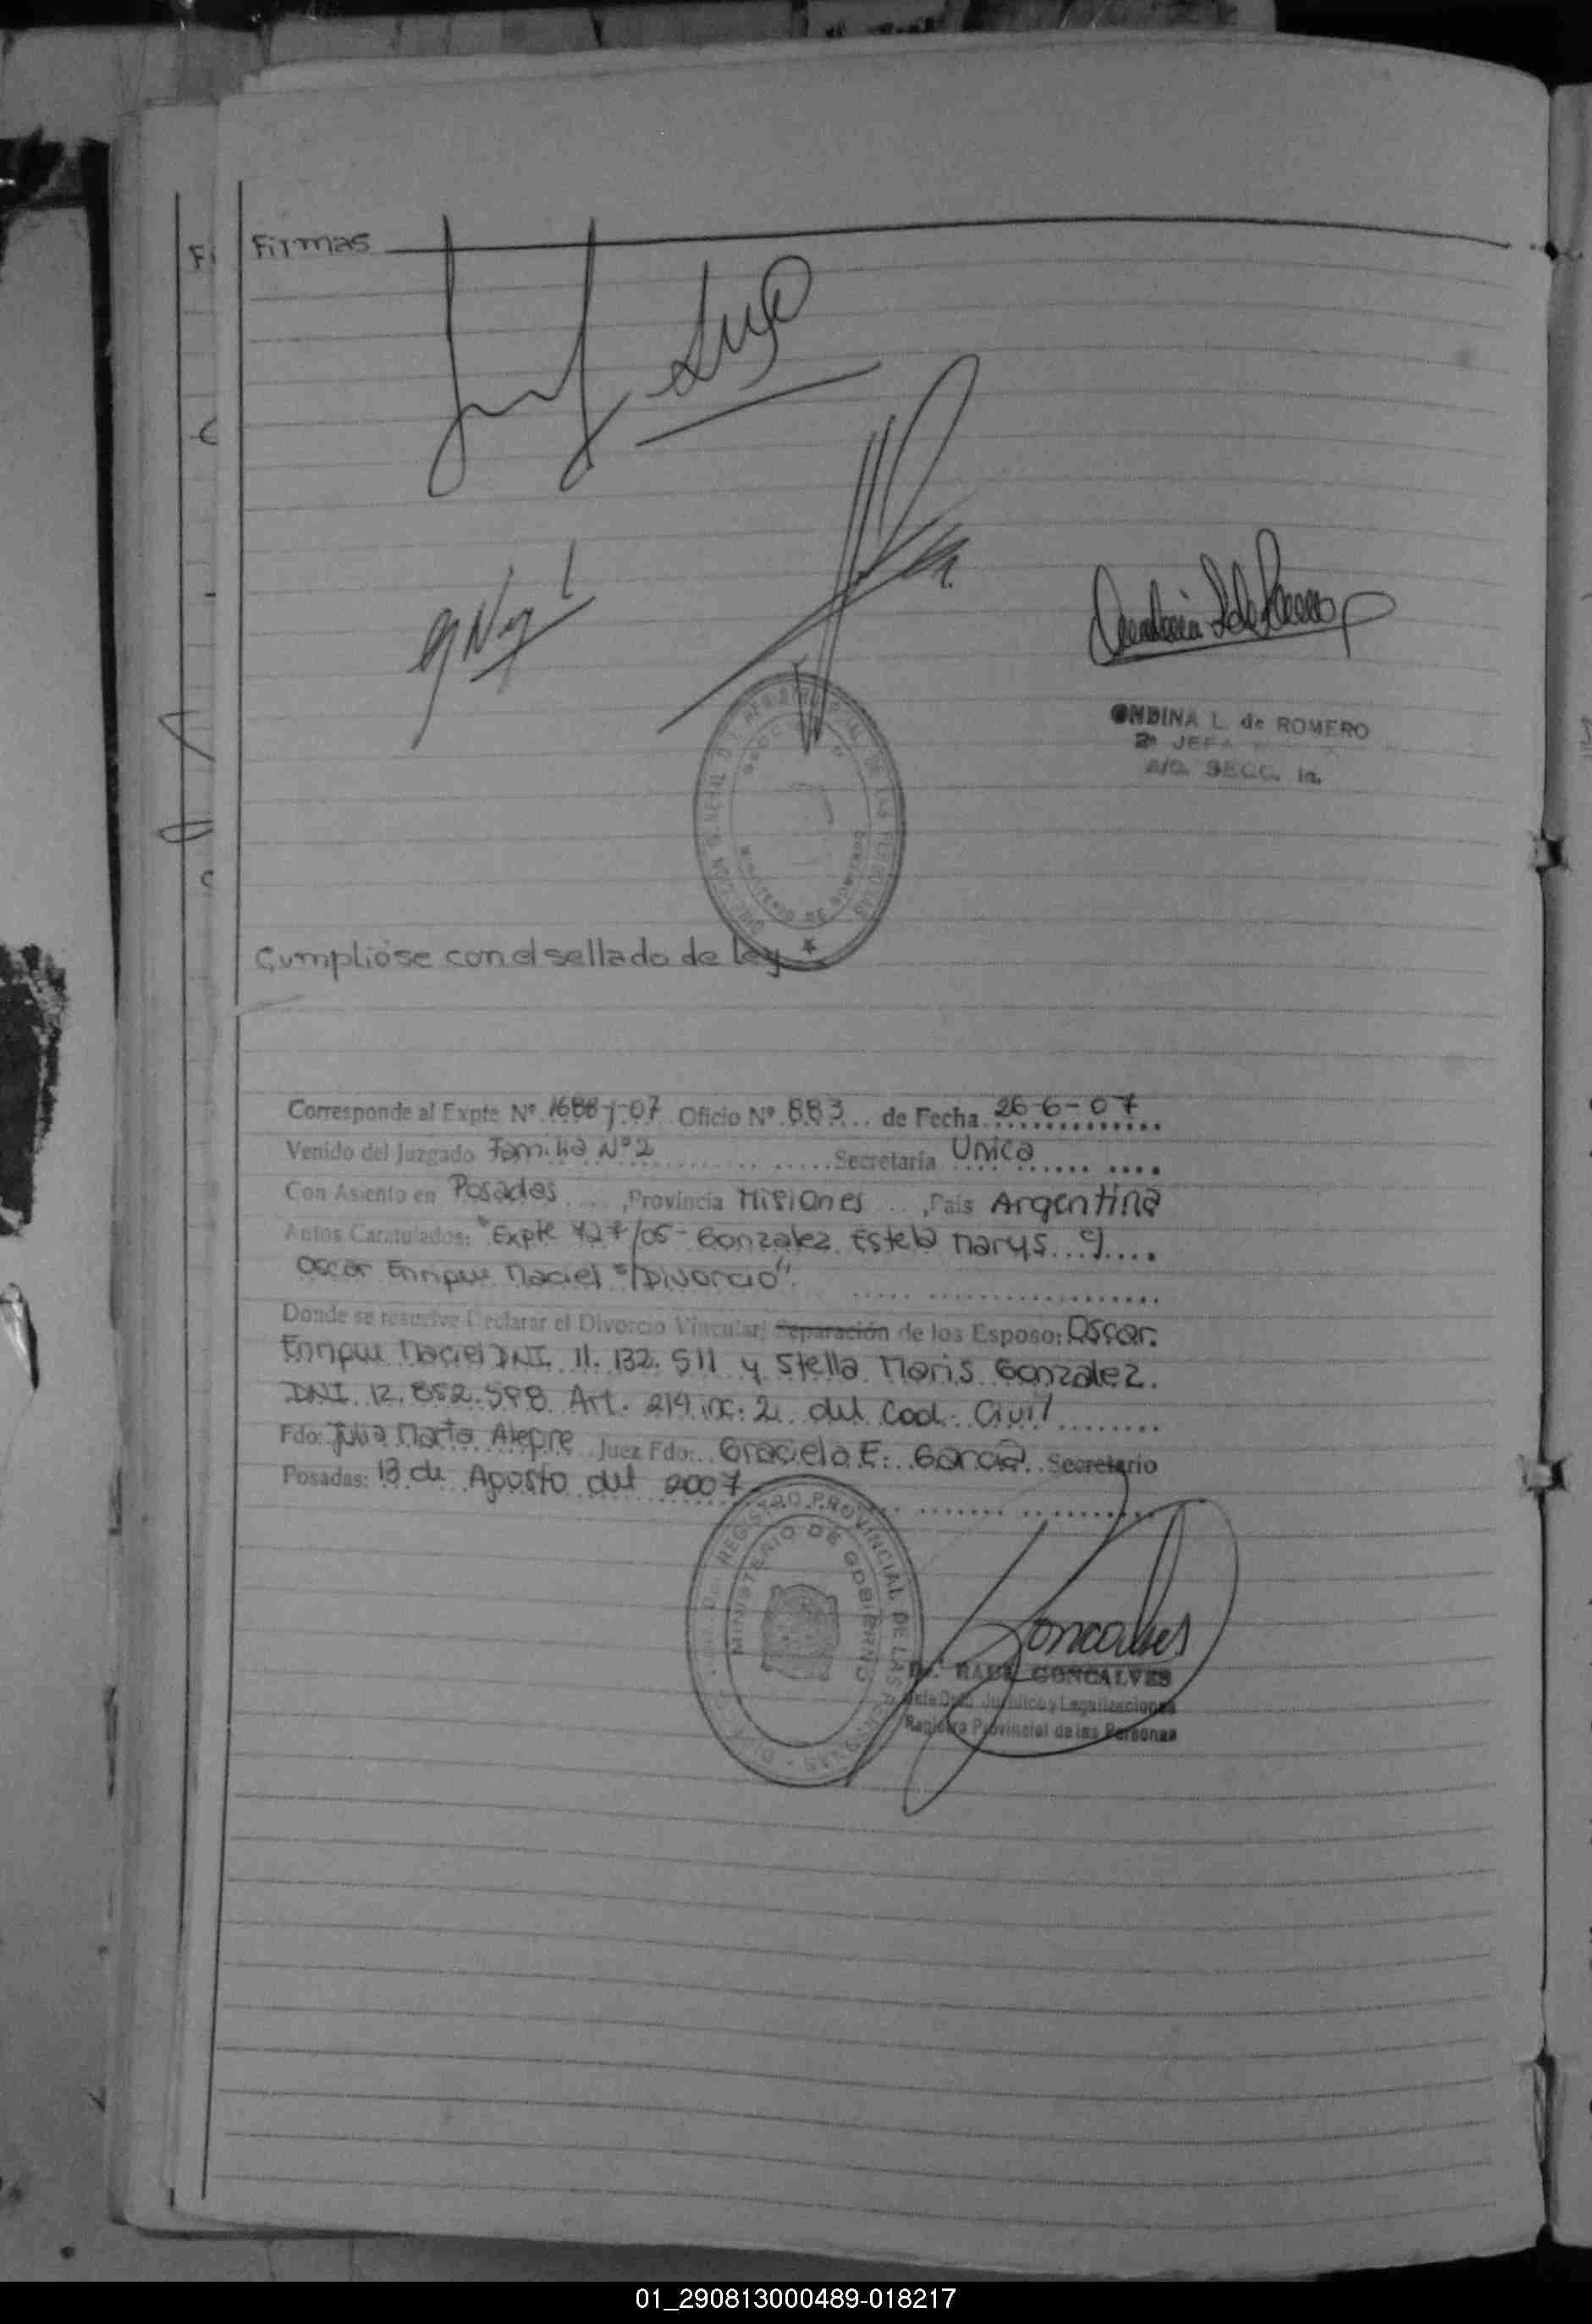 Firmas
ONDINA L. de ROMERO
2ª JEFA
A/C. SECC. 1a.
Cumplióse con el sellado de ley
Corresponde al Expte Nº 1688-J-07 Oficio Nº 883 de Fecha 26-6-07
Venido del Juzgado Familia Nº 2 Secretaría Unica
Con Asiento en Posadas, Provincia Misiones, Pais Argentina
Autos Caratulados: "Expte 427/05 - Gonzalez Estela Marys c/
Oscar Enrique Maciel s/Divorcio"
Donde se resuelve Declarar el Divorcio Vincular/ Separación de los Esposo: Oscar
Enrique Maciel DNI 11.132.511 y Stella Maris Gonzalez
DNI 12.852.598 Art. 214 inc. 2 del Cod. Civil
Fdo: Julia Marta Alegre Juez Fdo: Graciela E. Garcia Secretario
Posadas: 13 de Agosto del 2007
REGISTRO PROVINCIAL DE LAS PERSONAS
MINISTERIO DE GOBIERNO
Goncalves
Dr. RAUL GONCALVES
Jefe Dpto. Jurídico y Legalizaciones
Registro Provincial de las Personas
01_290813000489-018217